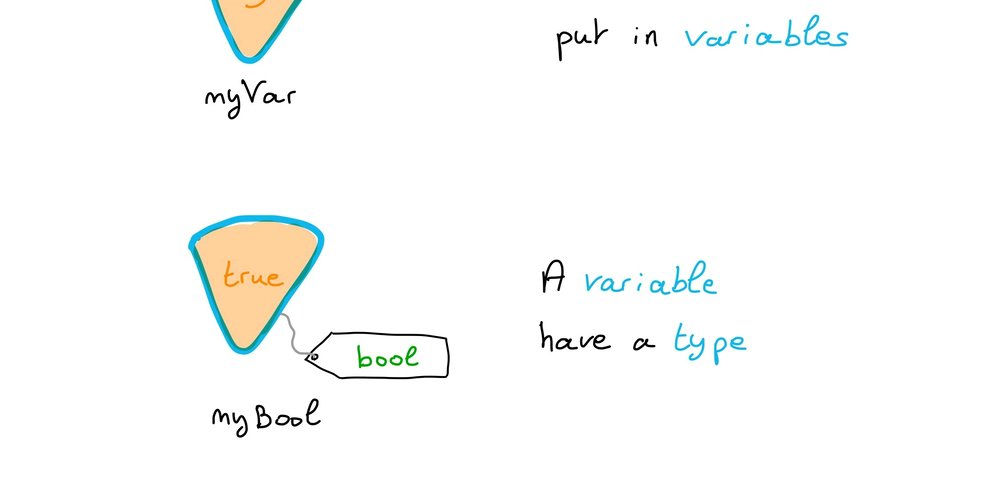 put in variables
myVar
true
A variable
have a type
bool
myBool